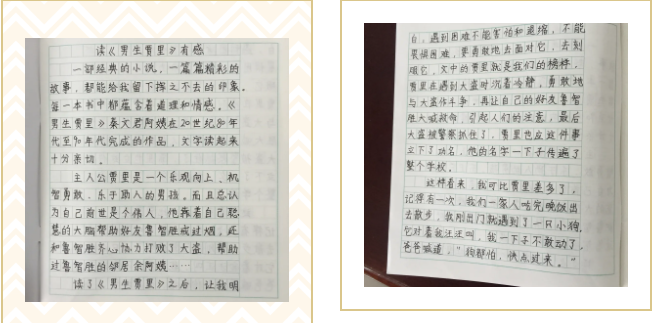 读《男生贾里》有感
一部经典的小说，一篇篇精彩的
故事，都能给我留下挥之不去的印象。
每一本书中都蕴含着道理和情感。《
男生贾里》秦文君阿姨在20世纪80年
代至90年代完成的作品，文字读起来
十分亲切。
主人公贾里是一个乐观向上、机
智勇敢、乐于助人的男孩。而且总认
为自己前世是个伟人，他靠着自己聪
慧的大脑帮助好友鲁智胜戒过烟，还
和鲁智胜齐心协力打败了大盗，帮助
过鲁智胜的邻居余阿姨……
读了《男生贾里》之后，让我明
白，遇到困难不能害怕和退缩，不能
畏惧困难，要勇敢地去面对它，去克
服它，文中的贾里就是我们的榜样，
贾里在遇到大盗时沉着冷静，勇敢地
与大盗作斗争，再让自己的好友鲁智
胜大喊救命，引起人们的注意，最后
大盗被警察抓住了，贾里也应这件事
立下了功名，他的名字一下子传遍了
整个学校。
这样看来，我可比贾里差多了，
记得有一次，我们一家人吃完晚饭出
去散步，我刚出门就遇到了一只小狗，
它对着我汪汪叫，我一下子不敢动了。
爸爸喊道，“狗都怕，快点过来。”